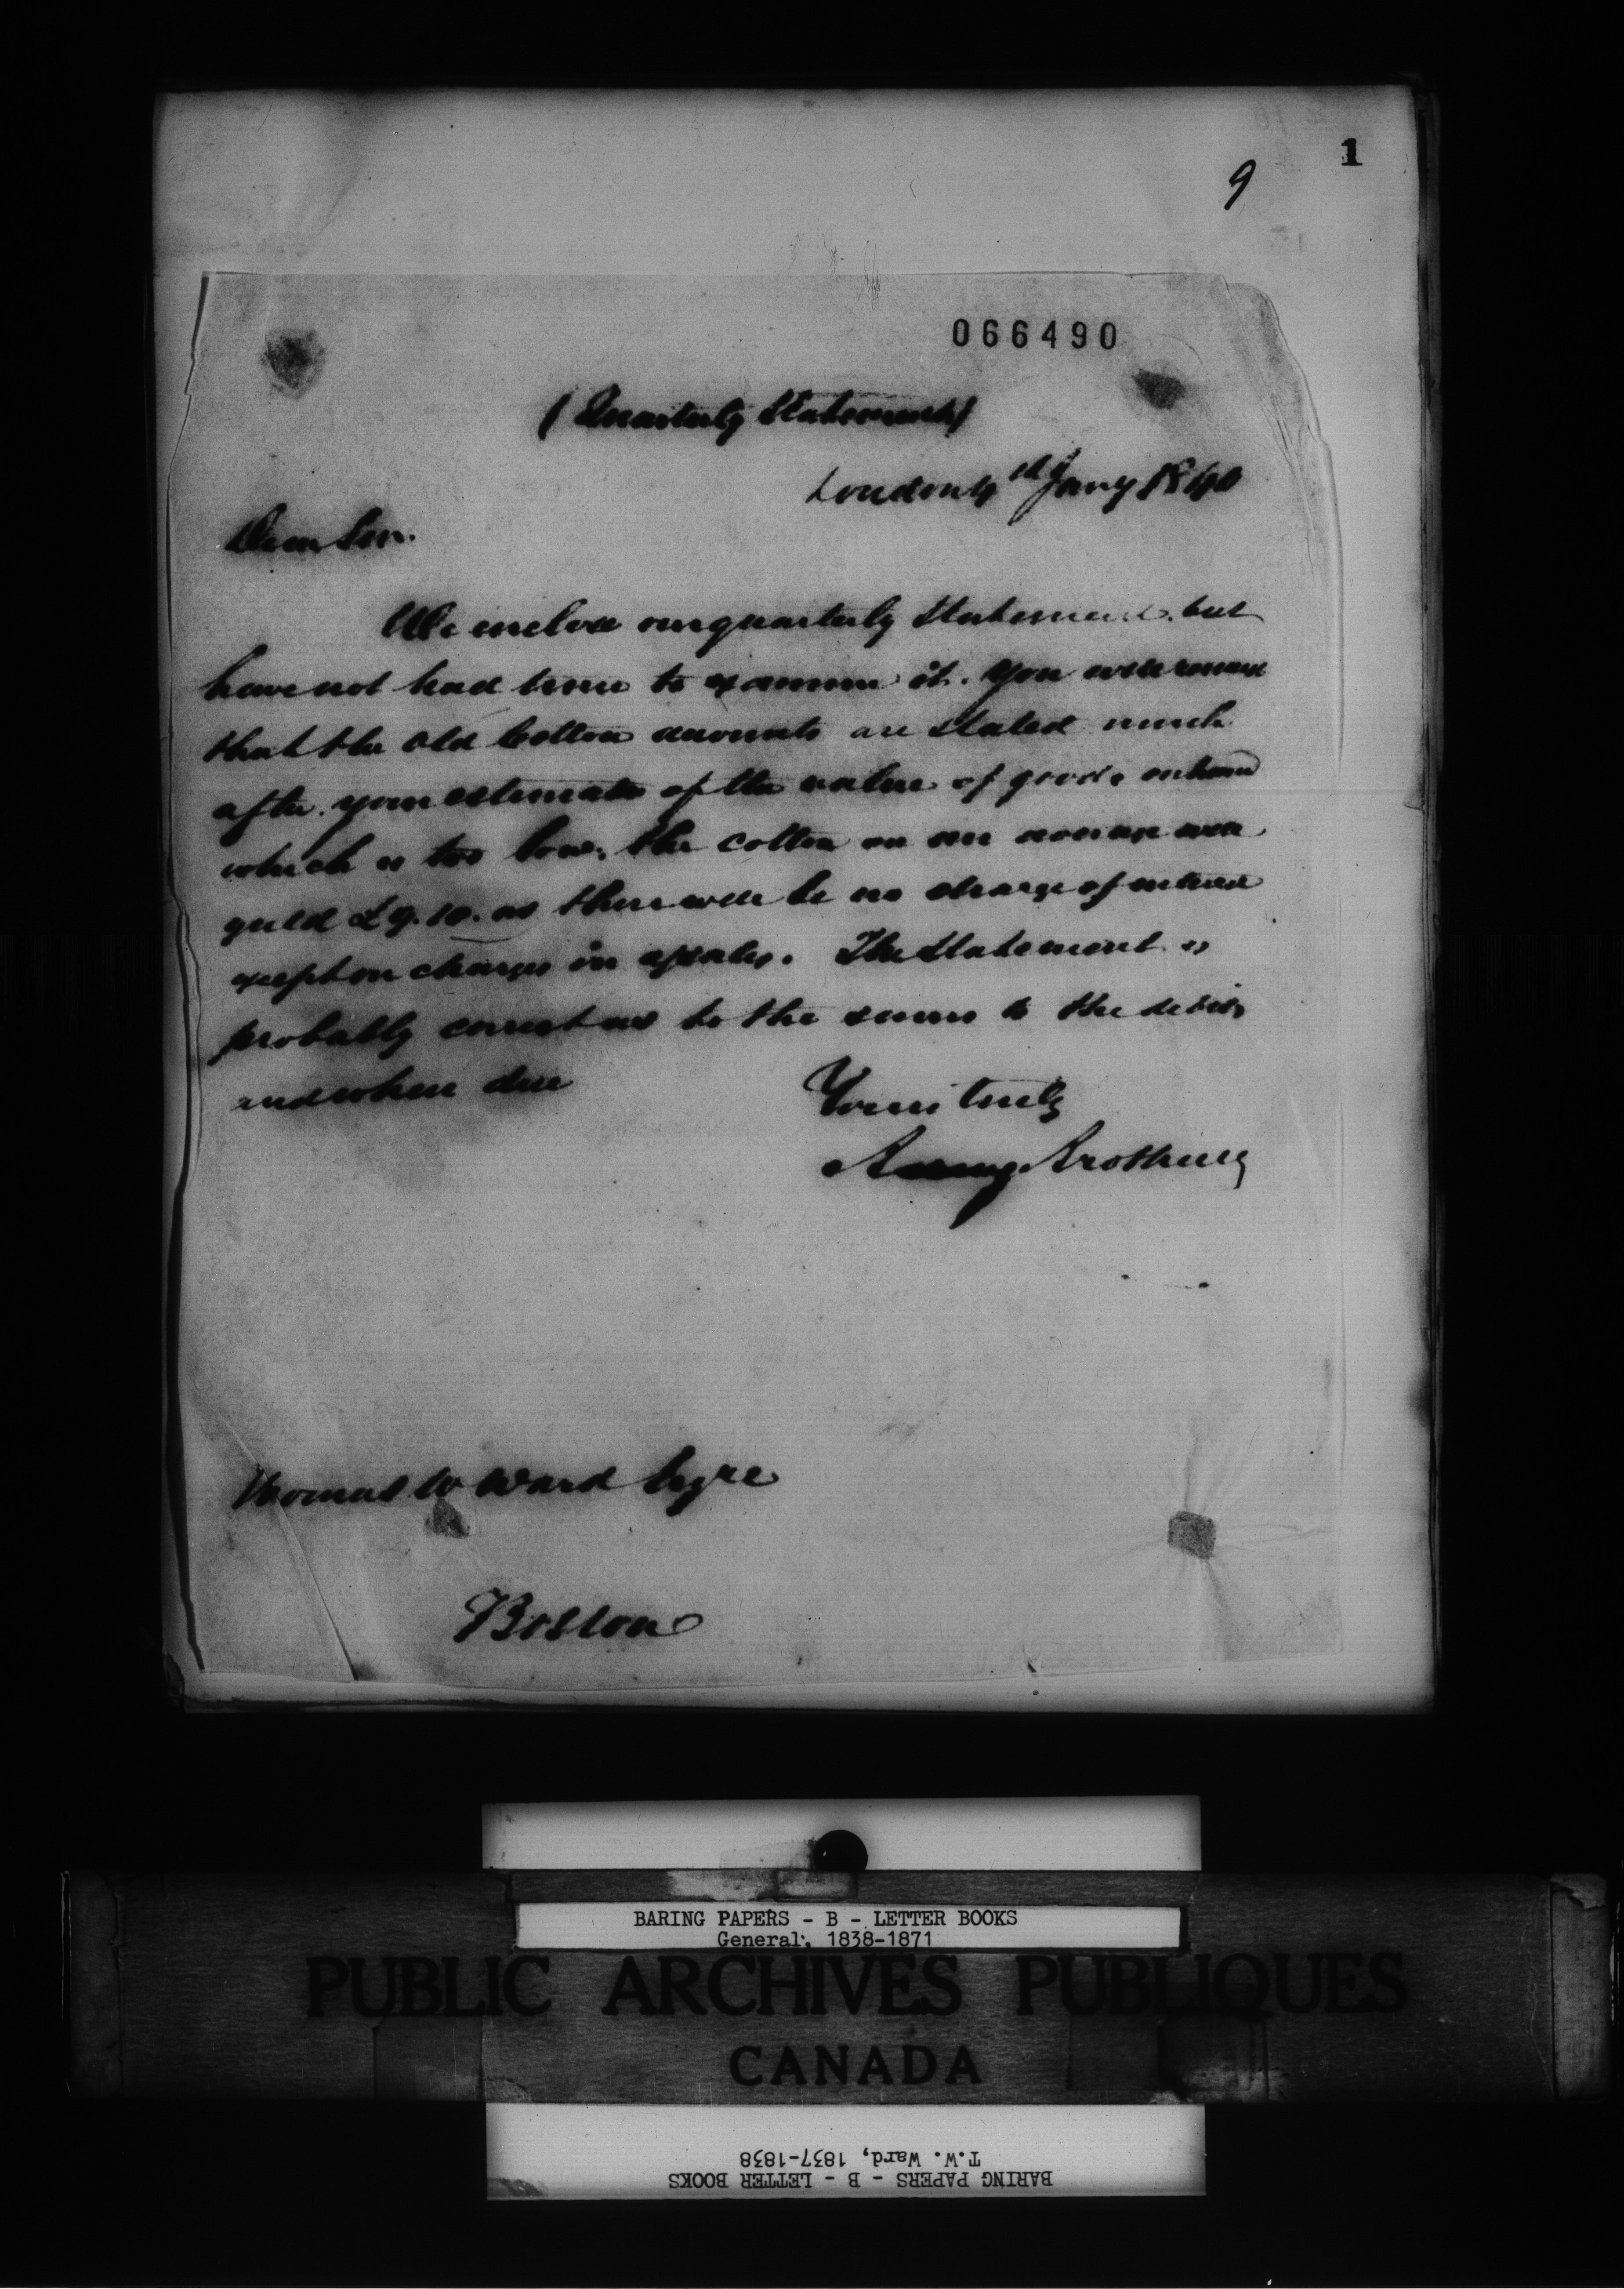 1
9
066490
(Quarterly Statement)
London 4th Jany 1840
Dear Sir.
We enclose our quarterly Statement. but
have not had time to examine it. You will remark
that the Old Cotton accounts are Stated much
after your estimate of the value of goods on hand
which is too low. the cotton on an average will
yield £9.10. as there will be no charge of interest
except on charges in a/sales. The Statement is
probably correct as to the sums to the debit
and when due
Yours truly
Baring Brothers
Thomas W Ward Esqre
Boston
BARING PAPERS - B - LETTER BOOKS
General, 1838-1871
PUBLIC ARCHIVES PUBLIQUES
CANADA
T.W. Ward, 1837-1838
BARING PAPERS - B - LETTER BOOKS